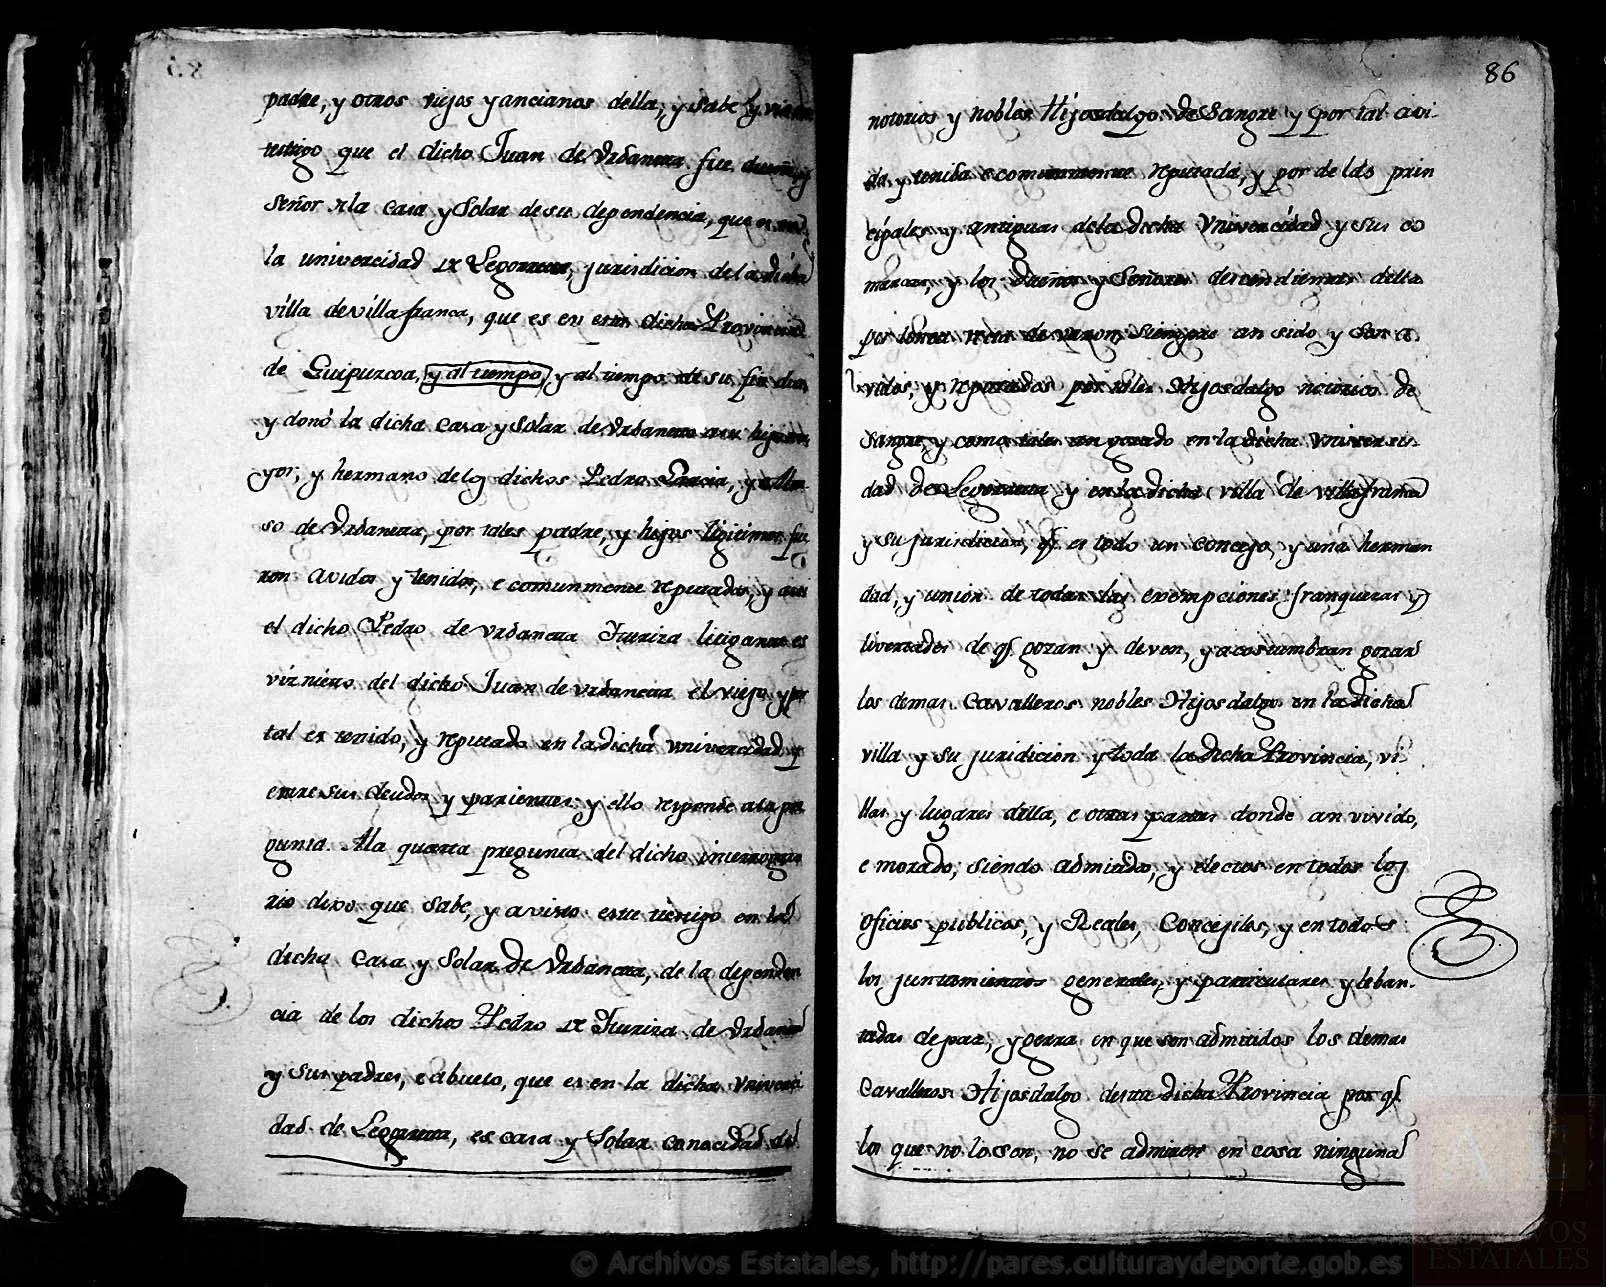 padre, y otros viejos y ancianos della, y sabe
testigo que el dicho Juan de Vrdaneta fue dueño y
Señor de la casa y Solar de su dependencia, que es en
la univercidad de Legorreta, jurisdicion de la dicha
villa de villafranca, que es en esta dicha Provincia
de Guipuzcoa, y al tiempo, y al tiempo de su fin
y donó la dicha casa y Solar de Vrdaneta a su hijo
yor, y hermano delos dichos Pedro Garcia, y
so de Vrdaneta, por tales padre, y hijos ligitimos fue
ron avidos y tenidos, e comunmente reputados, y asi
el dicho Pedro de Vrdaneta Iturriza litigante es
visnieto del dicho Juan de vrdaneta el viejo y por
tal es tenido, y reputado en la dicha univercidad y
entre sus deudos y parientes y ello responde a la pre
gunta. Ala quarta pregunta del dicho interrogato
rio dixo que sabe, y a visto este testigo en la
dicha casa y Solar de Vrdaneta, de la dependen
cia de los dichos Pedro de Iturriza de Vrdaneta
y sus padres, e abuelo, que es en la dicha Univerci
dad de Legorreta, es casa y Solar conocida de
86
notorios y nobles Hijosdalgo de Sangre y por tal avi
da, y tenida e comunmente reputada, y por de las prin
cipales y antiguas dela dicha Vnivercidad y sus co
marcas, y los dueños y Señores descendientes della
por linea recta de varon, siempre an sido y son a
vidos, y reputados por tales Hijosdalgo notorios de
Sangre, y como tales an gozado en la dicha Vniverci
dad de Legorreta y en la dicha villa de villafranca
y su jurisdicion, q es todo un concejo, y una herman
dad, y union de todas las exempciones franquezas y
livertades de q gozan y deven, y acostumbran gozar
los demas Cavalleros nobles Hijosdalgo en la dicha
villa y su juridicion y toda la dicha Provincia, vi
llas y lugares della, e otras partes donde an vivido,
e morado, siendo admitidos, y electos en todos los
oficios publicos, y Reales, Concejiles, y en todos
los juntamientos generales, y particulares y leban-
tadas de paz, y gerra en que son admitidos los demas
Cavalleros Hijosdalgo desta dicha Provincia por q
los que no lo son, no se admiten en cosa ninguna
© Archivos Estatales, http://pares.culturaydeporte.gob.es
ARCHIVOS
ESTATALES